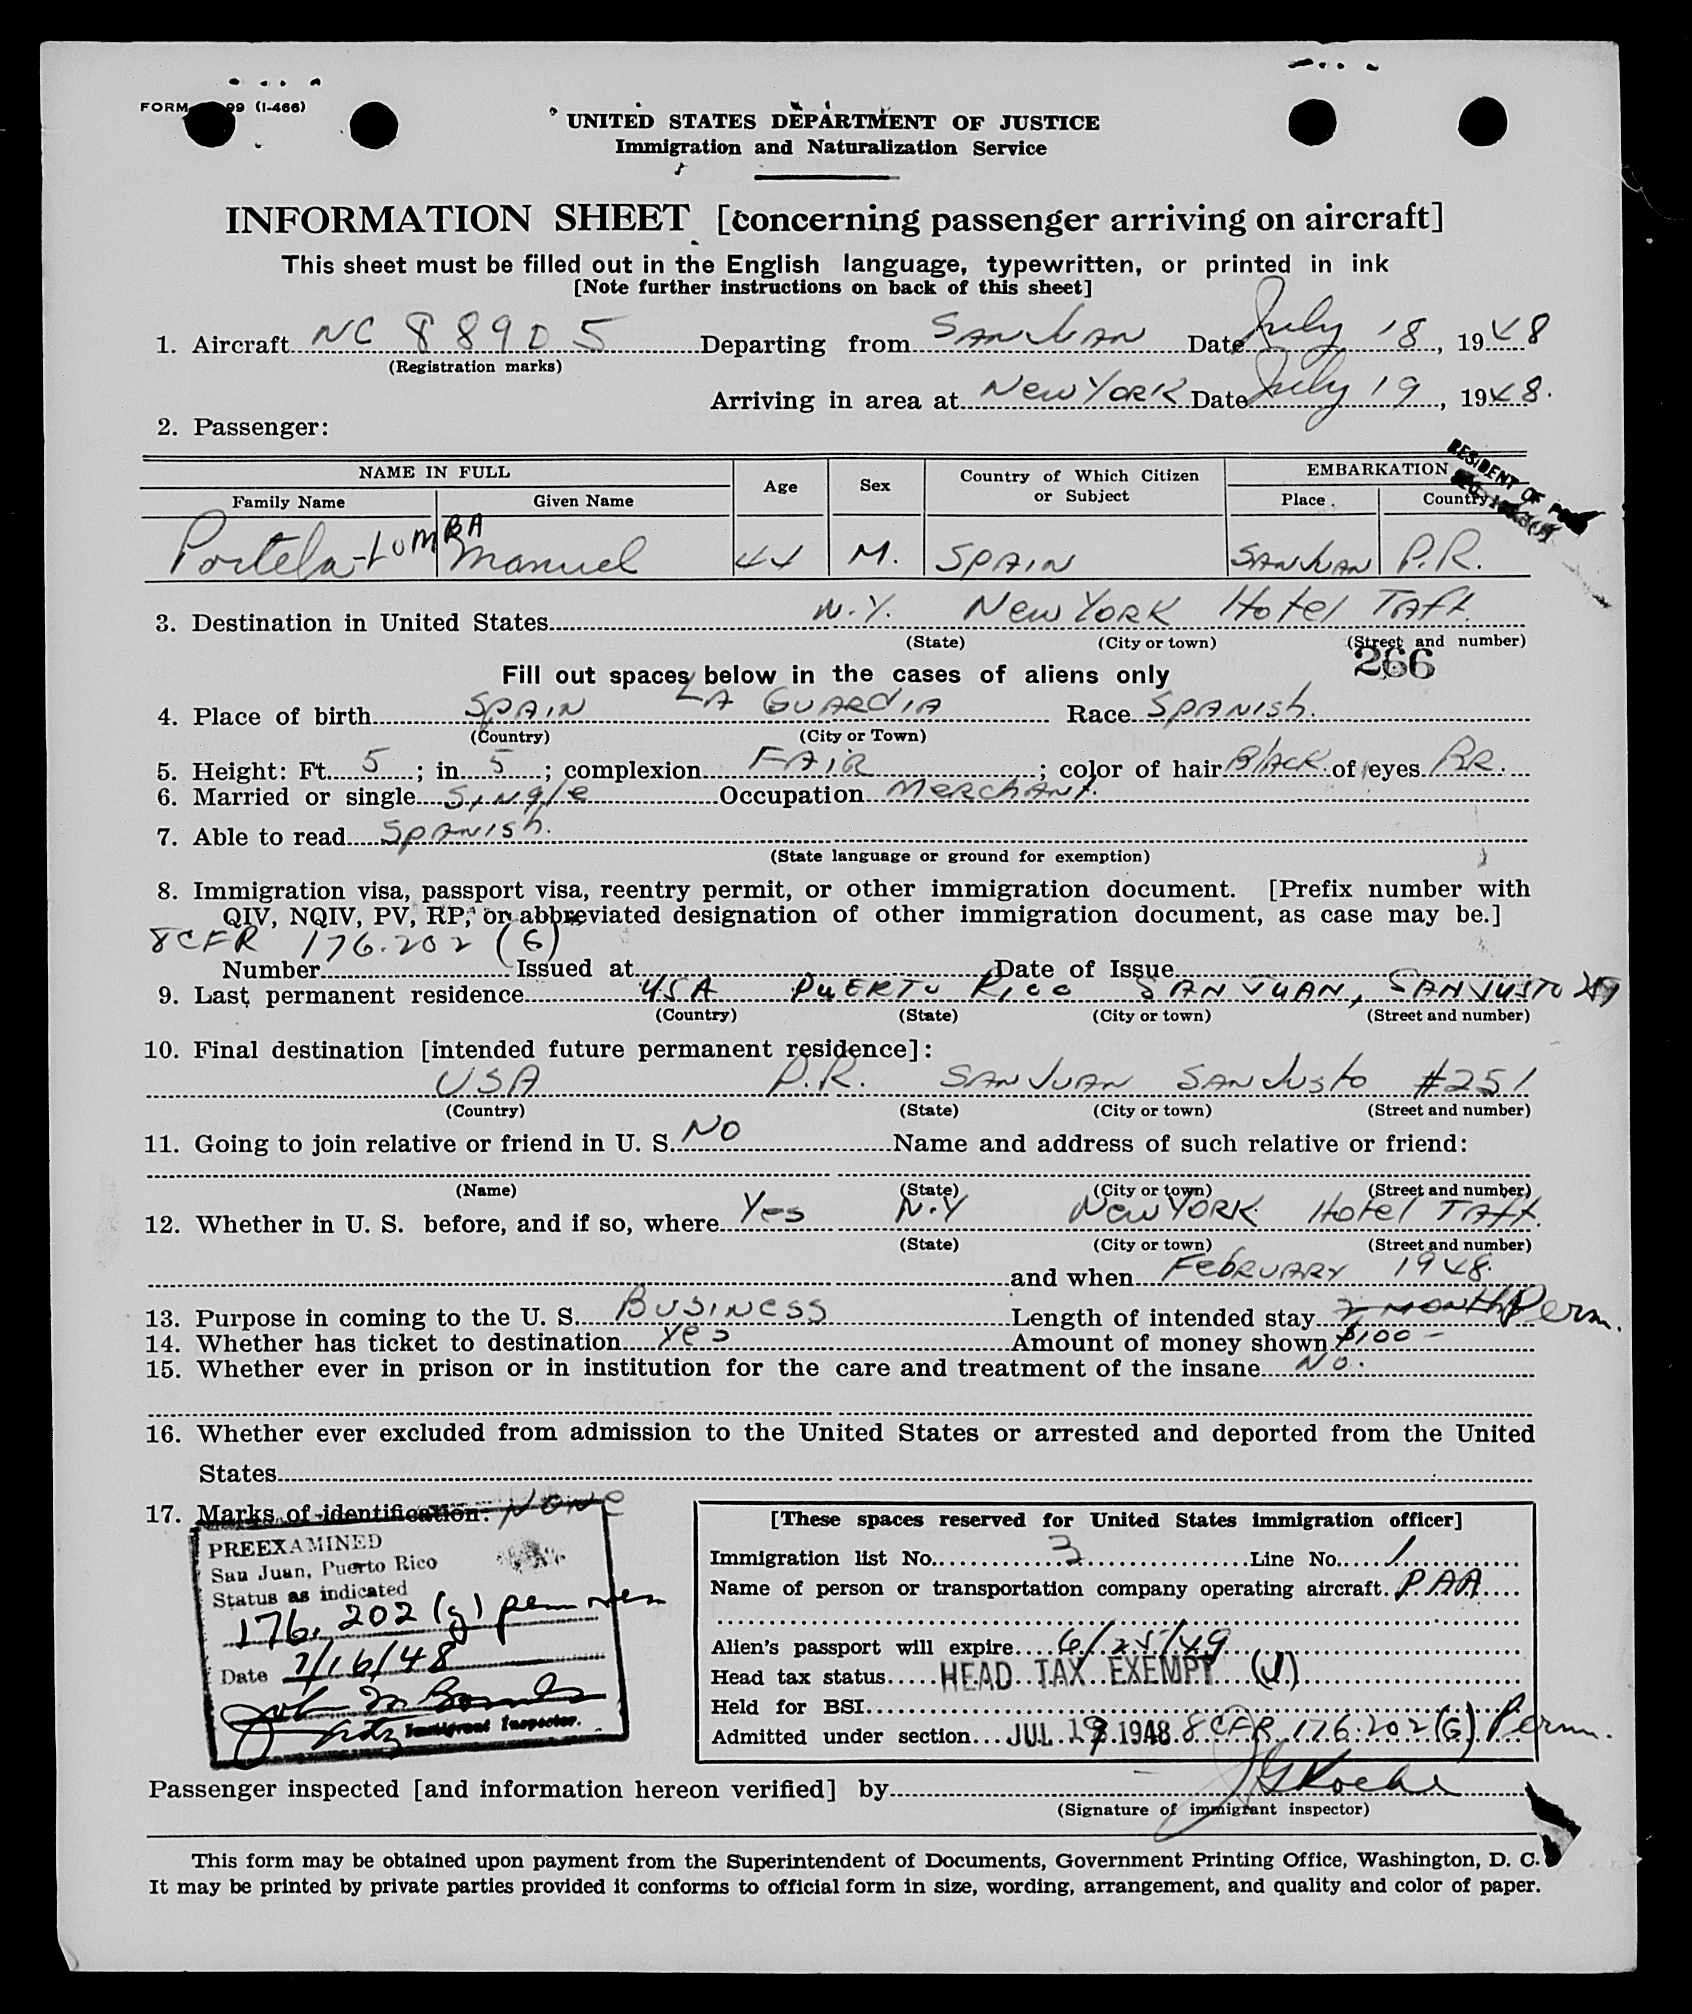 FORM 99 (I-466)
UNITED STATES DEPARTMENT OF JUSTICE
Immigration and Naturalization Service
INFORMATION SHEET [concerning passenger arriving on aircraft]
This sheet must be filled out in the English language, typewritten, or printed in ink
[Note further instructions on back of this sheet]
1. Aircraft NC 88905 Departing from SAN JUAN Date July 18, 1948
(Registration marks)
Arriving in area at New YORK Date July 19, 1948.
2. Passenger:
NAME IN FULL Age Sex Country of Which Citizen or Subject EMBARKATION
Family Name Given Name Place Country
RESIDENT OF
Portela-LOMBA Manuel 44 M. SPAIN SAN JUAN P.R.
3. Destination in United States N.Y. New YORK Hotel TAft.
(State) (City or town) (Street and number)
266
Fill out spaces below in the cases of aliens only
4. Place of birth SPAIN LA GUARdIA Race SPANISh.
(Country) (City or Town)
5. Height: Ft. 5; in. 5; complexion FAIR; color of hair BlACK of eyes BR.
6. Married or single Single Occupation MeRCHANt.
7. Able to read SPANISh.
(State language or ground for exemption)
8. Immigration visa, passport visa, reentry permit, or other immigration document. [Prefix number with
QIV, NQIV, PV, RP, or abbreviated designation of other immigration document, as case may be.]
8CFR 176.202 (G)
Number Issued at Date of Issue
9. Last permanent residence USA PUERTO RICO SAN JUAN, SAN JUSTO
(Country) (State) (City or town) (Street and number)
10. Final destination [intended future permanent residence]:
USA P.R. SAN JUAN SAN Justo #251
(Country) (State) (City or town) (Street and number)
11. Going to join relative or friend in U. S. NO Name and address of such relative or friend:
(Name) (State) (City or town) (Street and number)
12. Whether in U. S. before, and if so, where Yes N.Y New YORK Hotel TAft.
(State) (City or town) (Street and number)
and when FebRUARY 1948.
13. Purpose in coming to the U. S. BUSINESS Length of intended stay 2 MONTHS Perm.
14. Whether has ticket to destination Yes Amount of money shown $100-
15. Whether ever in prison or in institution for the care and treatment of the insane NO.
16. Whether ever excluded from admission to the United States or arrested and deported from the United
States
17. Marks of identification: NONE
PREEXAMINED
San Juan, Puerto Rico
Status as indicated
176.202(g) perm
Date 7/16/48
Immigrant Inspector.
[These spaces reserved for United States immigration officer]
Immigration list No. 3 Line No. 1
Name of person or transportation company operating aircraft. PAA
Alien's passport will expire 6/25/49
Head tax status HEAD TAX EXEMPT (J)
Held for BSI
Admitted under section JUL 19 1948 8CFR 176.202(G) Perm.
Passenger inspected [and information hereon verified] by
(Signature of immigrant inspector)
This form may be obtained upon payment from the Superintendent of Documents, Government Printing Office, Washington, D. C.
It may be printed by private parties provided it conforms to official form in size, wording, arrangement, and quality and color of paper.